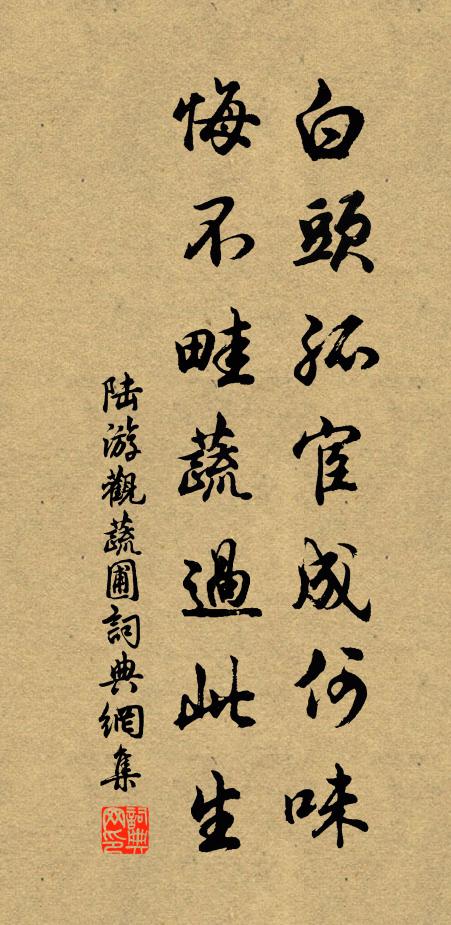 白頭孤宦成何味
悔不畦蔬過此生
陆游觀蔬圃詞典網集
詞典网印